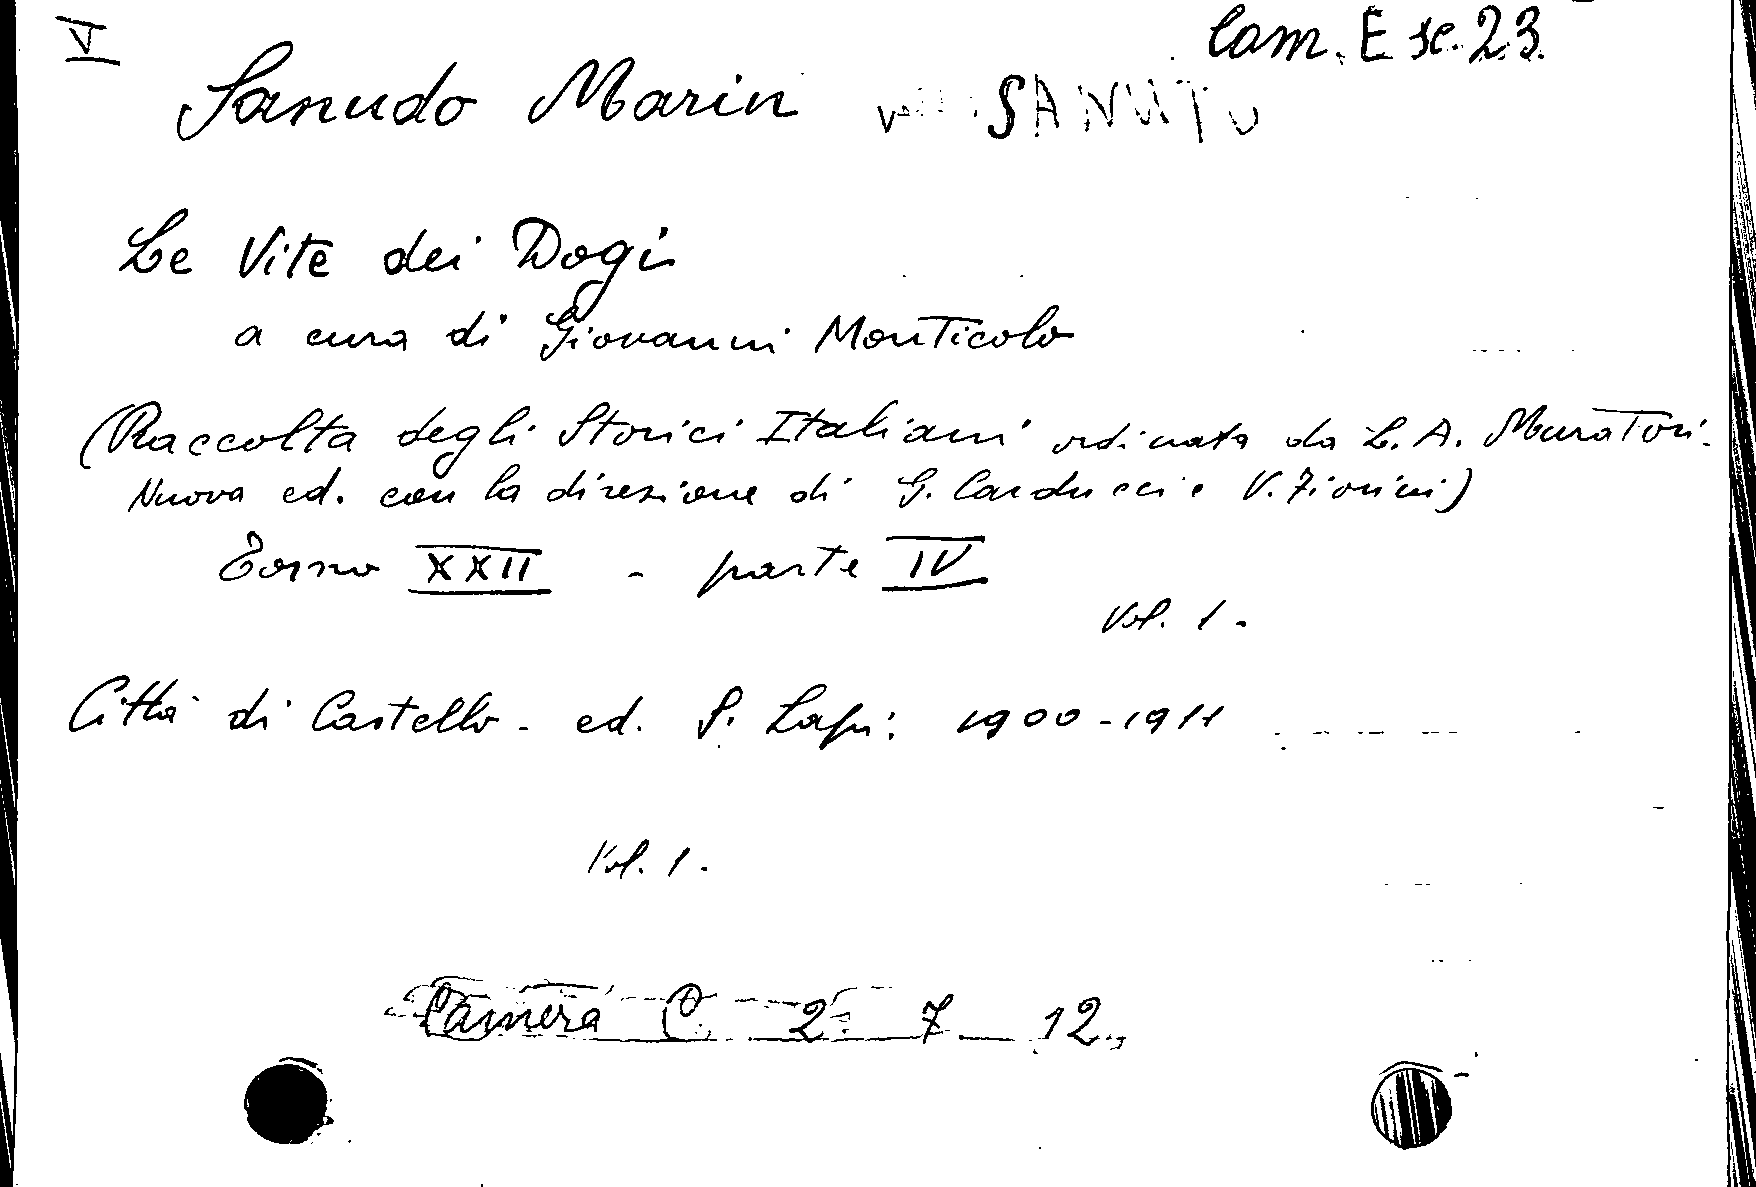 V
Cam. E sc. 23
Sanudo Marin SANUTO
Le Vite dei Dogi
a cura di Giovanni Monticolo
(Raccolta degli Storici Italiani ordinata da L. A. Muratori.
Nuova ed. con la direzione di G. Carducci e V. Fiorini)
Tomo XXII - parte IV
Vol. 1.
Città di Castello - ed. S. Lapi: 1900-1911
Vol. 1.
Camera C 2 7 12